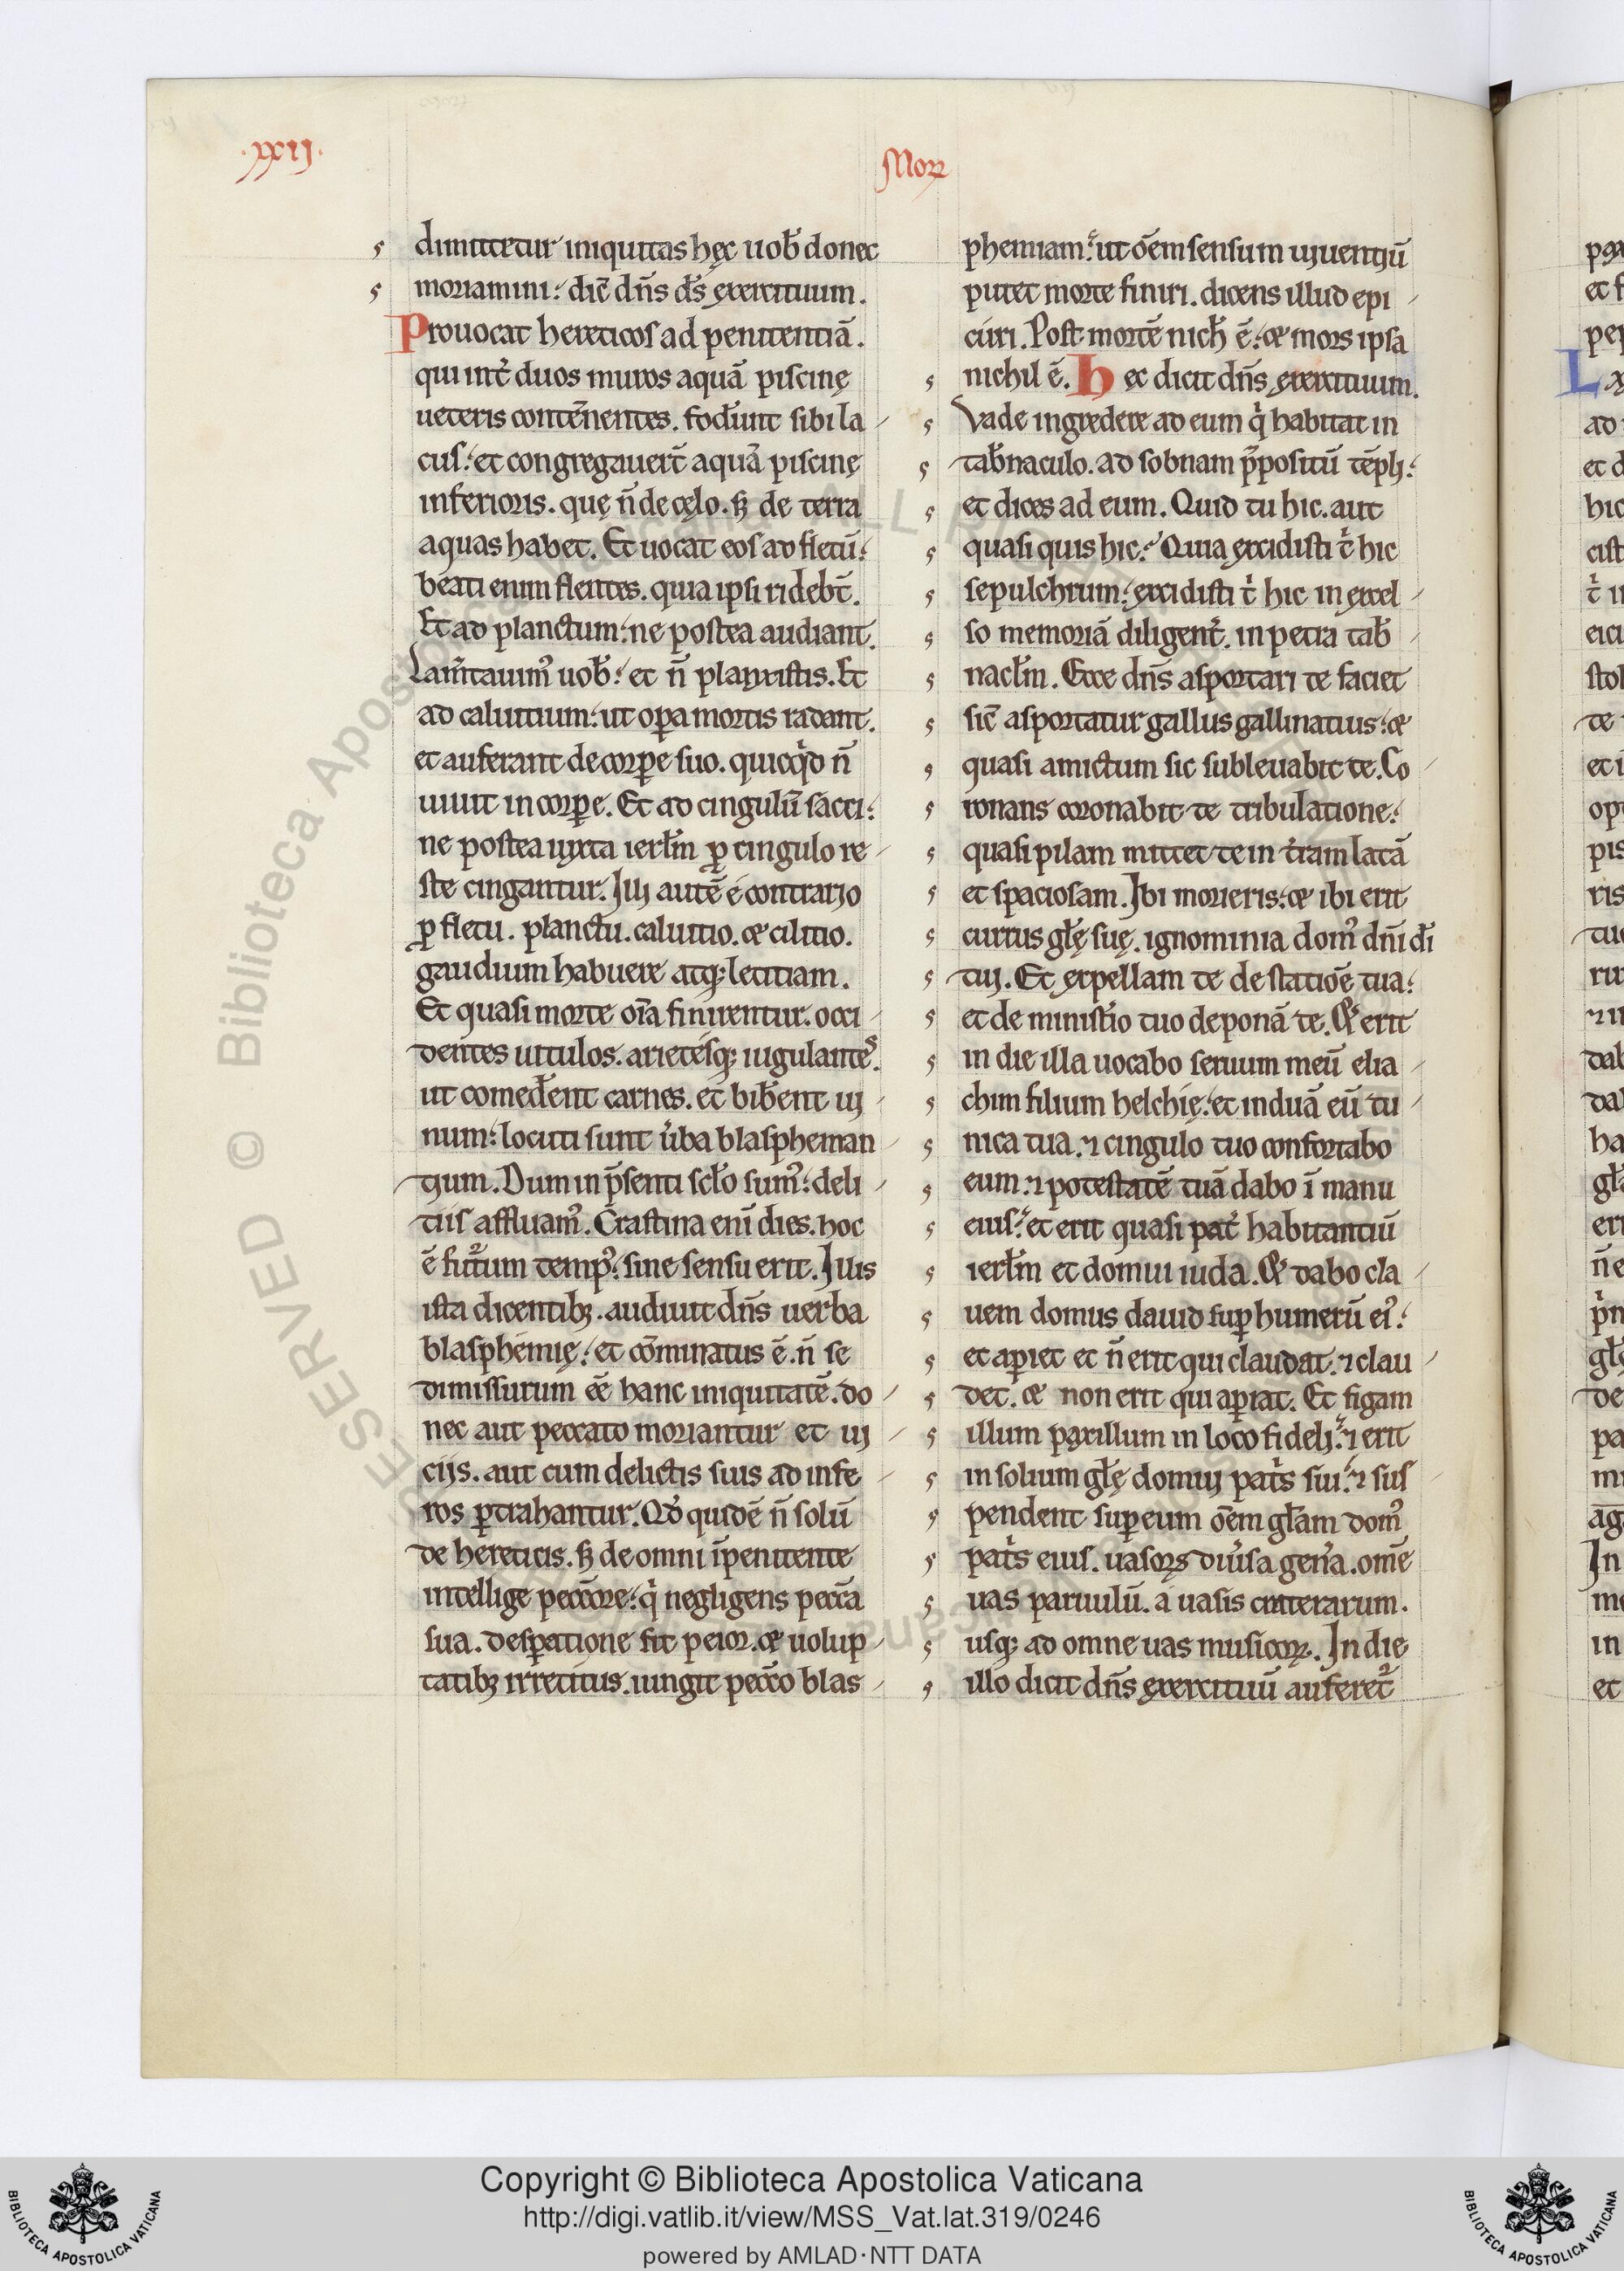 ·xxij·
Morꝝ
dimittetur iniquitas hęc uob̄ donec
moriamini: dic̄ dn̄s ds̄ exercituum.
Prouocat hereticos ad penitentiā.
qui int̾ duos muros aquā piscinę
ueteris contēnentes. fod̾unt sibi la
cus: et congregauer̄t aquā piscinę
inferioris. quę n̄ de cęlo. sꝫ de terra
aquas habet. Et uocat eos ad fletū:
beati enim flentes. quia ipsi rideb̄t.
Et ad planctum: ne postea audiant.
Lam̄tauim᷒ uob̄: et n̄ planxistis. Et
ad caluitium: ut oꝑa mortis radant.
et auferant de corꝑe suo. quicq̇d n̄
uiuit in corꝑe. Et ad cingulū sacci:
ne postea iuxta ierl̄m ꝑ cingulo re
ste cingantur. Illi autē e contrario
ꝑ fletu. planctu. caluitio. & cilitio.
gaudium habuere atqꝫ letitiam.
Et quasi morte oīa finirentur. occi
dentes uitulos. arietesqꝫ iugulantes.
ut comed̾ent carnes. et bib̾ent ui
num: locuti sunt u̾ba blaspheman
tium. Dum in p̄senti scl̄o sum᷒: deli
tiis affluam᷒. Crastina enī dies. hoc
ē fut᷑um temp᷒: sine sensu erit. Illis
ista dicentibꝫ. audiuit dn̄s uerba
blasphemię: et cōminatus ē. n̄ se
dimissurum eē hanc iniquitatē. do
nec aut peccato moriantur et ui
ciis. aut cum delictis suis ad infe
ros ꝑtrahantur. Qd̾ quidē n̄ solū
de hereticis. sꝫ de omni īpenitente
intellige peccōre: q̇ negligens pecc̄a
sua. desꝑatione fit peior. & uolup
tatibꝫ irretitus. iungit pecc̄o blas
phemiam: ut oēm sensum uiuentiū
putet morte finiri. dicens illud epi
curi. Post mortē nich̄ ē: & mors ipsa
nichil ē. Hec dicit dn̄s exercituum.
Vade ingredere ad eum q̇ habitat in
tab̾naculo. ad sobnam p̄positū tēpli:
et dices ad eum. Quid tu hic. aut
quasi quis hic: Quia excidisti ṫ hic
sepulchrum: excidisti ṫ hic in excel
so memoriā diligent̾. in petra tab̾
nacl̄m. Ecce dn̄s asportari te faciet
sic̄ asportatur gallus gallinatius: &
quasi amictum sic subleuabit te. Co
ronans coronabit te tribulatione:
quasi pilam mittet te in t̾ram latā
et spaciosam. Ibi morieris: & ibi erit
currus gl̄ę suę. ignominia dom᷒ dn̄i di
tui. Et expellam te de statiōe tua:
et de minist̾io tuo deponā te. & erit
in die illa uocabo seruum meū elia
chim filium helchię: et induā eū tu
nica tua. ⁊ cingulo tuo confortabo
eum: ⁊ potestatē tuā dabo ī manu
eius: et erit quasi pat̾ habitantiū
ierl̄m et domui iuda. & dabo cla
uem domus dauid suꝑ humerū ei᷒:
et aꝑiet et n̄ erit qui claudat. ⁊ clau
det. & non erit qui aꝑiat. Et figam
illum paxillum in loco fideli: ⁊ erit
in solium gl̄ę domui pat̾s sui: ⁊ sus
pendent suꝑ eum oēm gl̄am dom᷒
pat̾s eius. uasoꝝ diu̾sa gen̾a. om̄e
uas paruulū. a uasis craterarum.
usqꝫ ad omne uas musicoꝝ. In die
illo dicit dn̄s exercituū auferet᷑
Copyright © Biblioteca Apostolica Vaticana
http://digi.vatlib.it/view/MSS_Vat.lat.319/0246
powered by AMLAD·NTT DATA
BIBLIOTECA APOSTOLICA VATICANA
BIBLIOTECA APOSTOLICA VATICANA